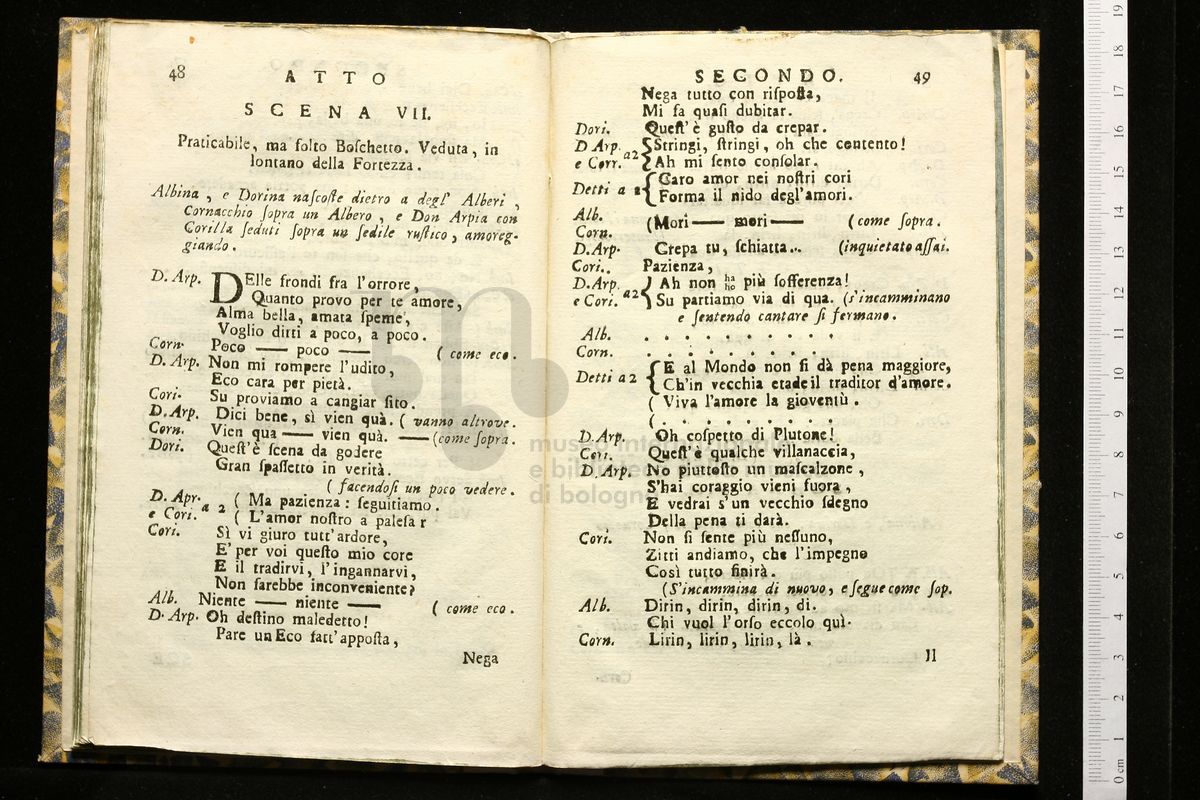 48
ATTO
SCENA VII.
Praticabile, ma folto Boſchetto. Veduta, in
lontano della Fortezza.
Albina, e Dorina naſcoſte dietro a degl' Alberi,
Cornacchio ſopra un Albero, e Don Arpia con
Corilla ſeduti ſopra un ſedile ruſtico, amoreg-
giando.
D. Arp. DElle frondi fra l'orrore,
Quanto provo per te amore,
Alma bella, amata ſpeme,
Voglio dirti a poco, a poco.
Corn. Poco —— poco —— ( come eco.
D. Arp. Non mi rompere l'udito,
Eco cara per pietà.
Cori. Su proviamo a cangiar ſito.
D. Arp. Dici bene, sì vien quà. ( vanno altrove.
Corn. Vien qua —— vien quà. —— (come ſopra.
Dori. Queſt'è ſcena da godere
Gran ſpaſſetto in verità.
( facendoſi un poco vedere.
D. Apr. e Cori. a 2 ( Ma pazienza: ſeguitiamo.
( L'amor noſtro a paleſar
Cori. Sì vi giuro tutt'ardore,
E' per voi queſto mio core
E il tradirvi, l'ingannarvi,
Non ſarebbe inconveniente?
Alb. Niente —— niente —— ( come eco.
D. Arp. Oh deſtino maledetto!
Pare un Eco fatt'appoſta,
Nega
SECONDO. 49
Nega tutto con riſpoſta,
Mi fa quaſi dubitar.
Dori. Queſt'è guſto da crepar.
D Arp. e Corr. a2 { Stringi, ſtringi, oh che contento!
Ah mi ſento conſolar.
Detti a 2 { Caro amor nei noſtri cori
Forma il nido degl'amori.
Alb. Corn. (Mori —— mori —— (come ſopra.
D. Arp. Crepa tu, ſchiatta... (inquietato aſſai.
Cori.. Pazienza,
D. Arp. e Cori. a2 { Ah non ha ho più ſofferenza!
Su partiamo via di qua. (s'incamminano
e ſentendo cantare ſi fermano.
Alb. . . . . . . . . . .
Corn. . . . . . . . . . .
Detti a2 { E al Mondo non ſi dà pena maggiore,
Ch'in vecchia etade il traditor d'amore.
( Viva l'amore la gioventù.
( . . . . . . . . . .
D. Arp. Oh coſpetto di Plutone!
Cori. Queſt'è qualche villanaccia,
D. Arp. No piuttoſto un maſcalzone,
S'hai coraggio vieni fuora,
E vedrai s'un vecchio ſdegno
Della pena ti darà.
Cori. Non ſi ſente più neſſuno,
Zitti andiamo, che l'impegno
Così tutto finirà.
(S'incammina di nuovo, e ſegue come ſop.
Alb. Dirin, dirin, dirin, di.
Chi vuol l'orſo eccolo quì.
Corn. Lirin, lirin, lirin, là.
Il
museo internazionale
e biblioteca
di bologna
19
18
17
16
15
14
13
12
11
10
9
8
7
6
5
4
3
2
1
0 cm